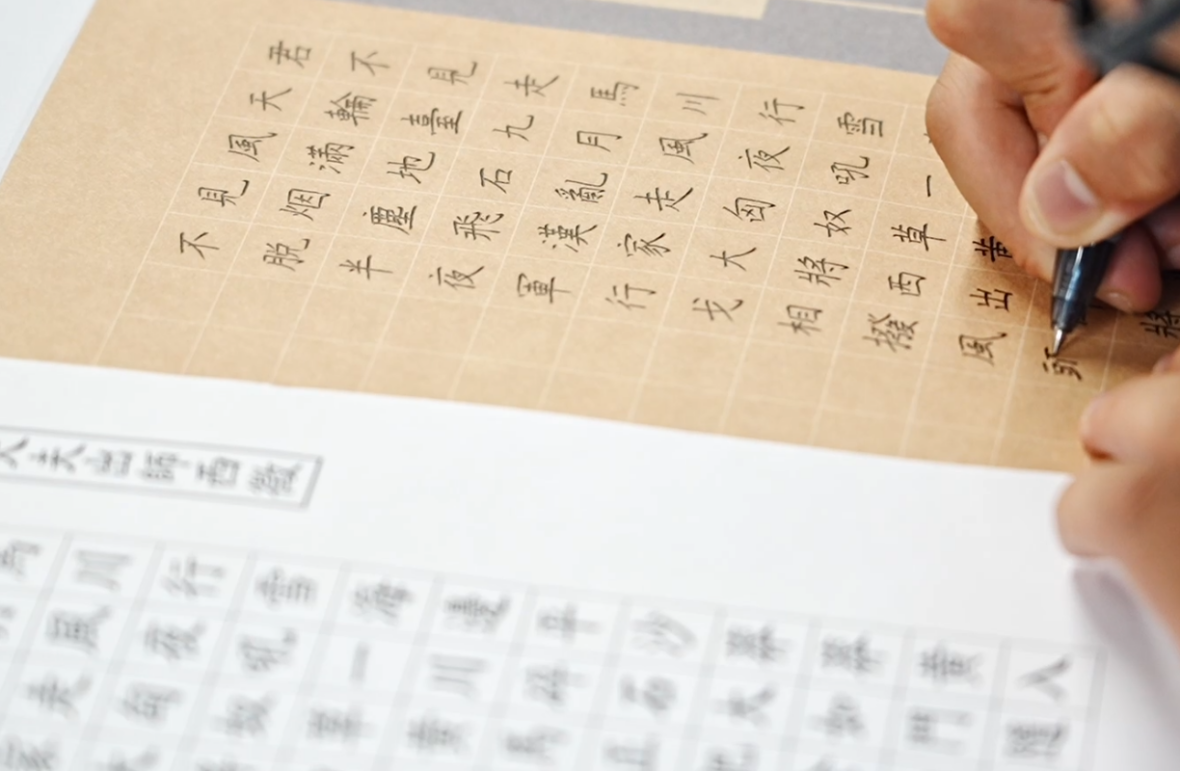 君不見走馬川行雪
天輪臺九月風夜吼一
風滿地石亂走匈奴草黃
見烟塵飛漢家大將西出
不脫半夜軍行戈相撥風頭
大夫出師西徵
川行雪海邊平沙莽莽黃入
風夜吼一川碎石大如門隨
走匈奴草黃馬正